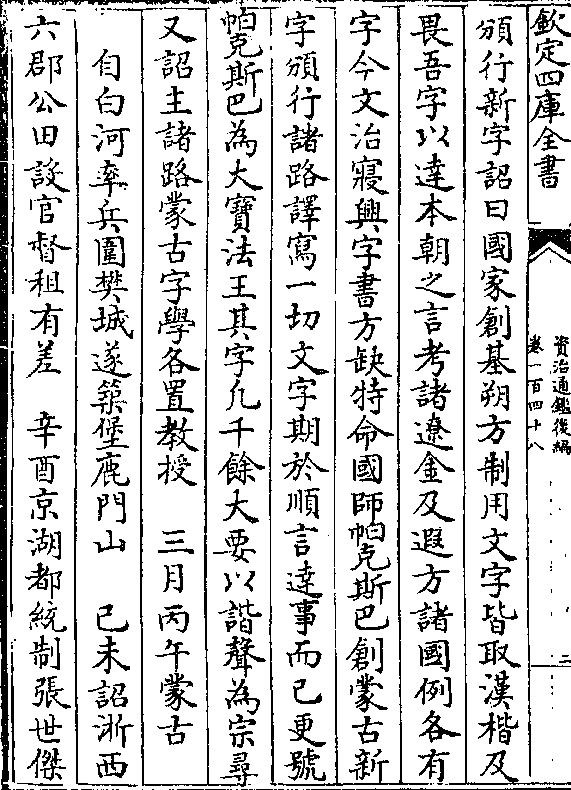 欽定四庫全書
資治通鑑後編
卷一百四十八
二
頒行新字詔曰國家創基朔方制用文字皆取漢楷及
畏吾字以達本朝之言考諸遼金及遐方諸國例各有
字今文治寖興字書方缺特命國師帕克斯巴創蒙古新
字頒行諸路譯寫一切文字期於順言達事而已更號
帕克斯巴為大寶法王其字凡千餘大要以諧聲為宗尋
又詔主諸路蒙古字學各置教授　三月丙午蒙古
自白河率兵圍樊城遂築堡鹿門山　己未詔浙西
六郡公田設官督租有差　辛酉京湖都統制張世傑